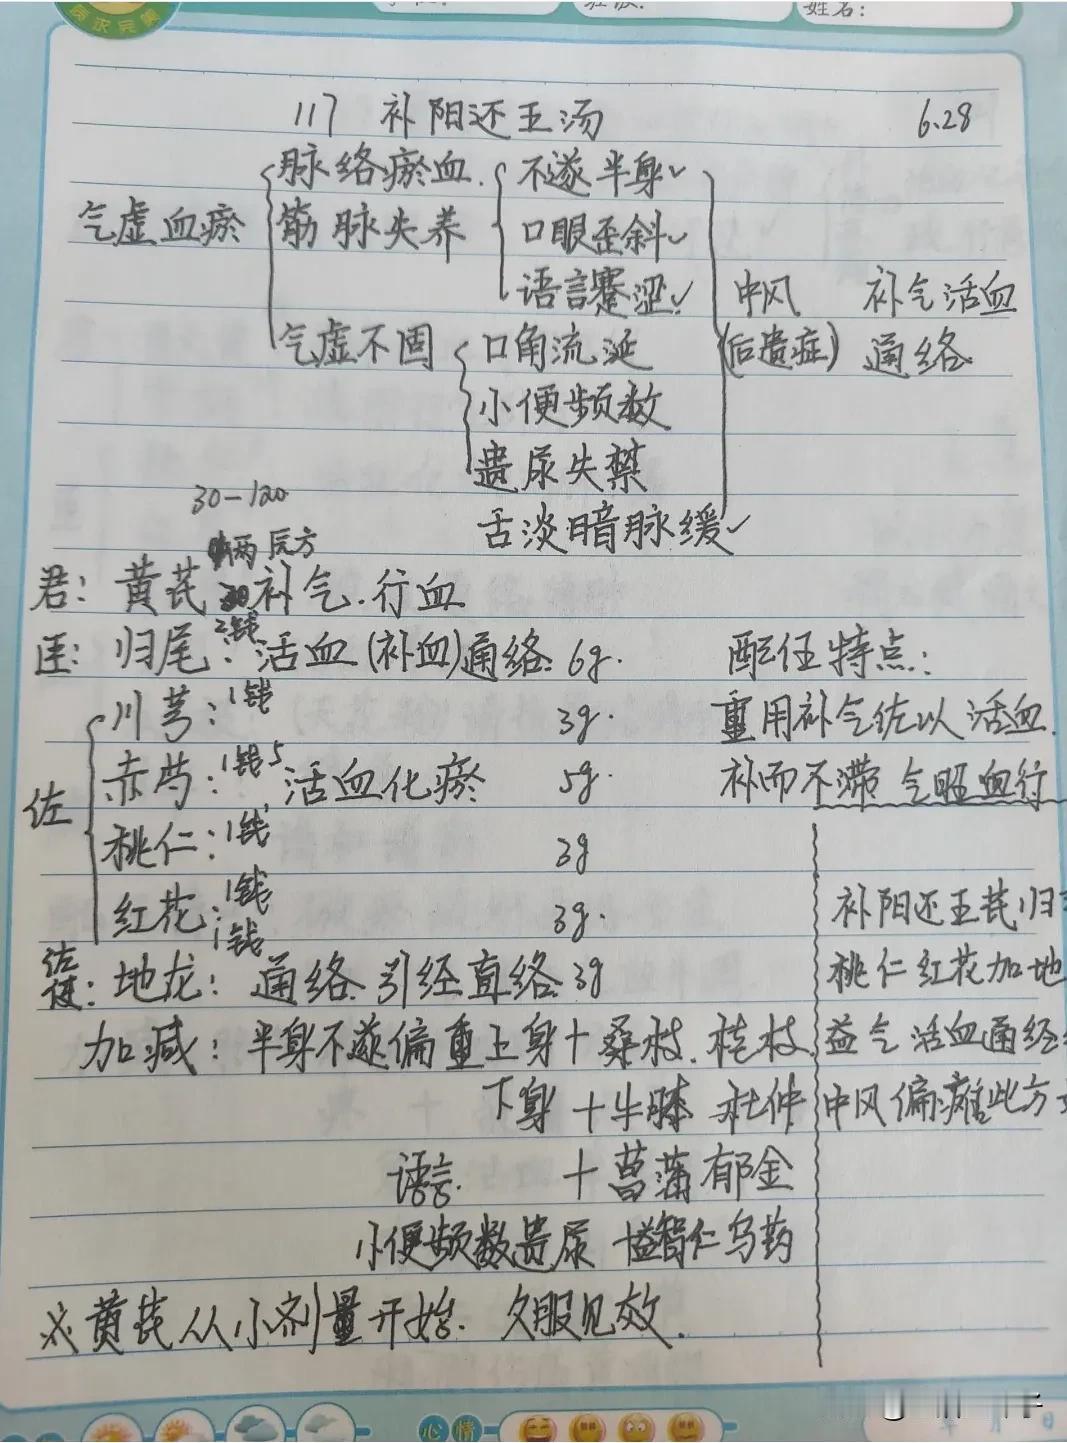 姓名：
117 补阳还五汤 6.28
气虚血瘀
脉络瘀血
筋脉失养
不遂半身✓
口眼歪斜✓
语言蹇涩✓
气虚不固
口角流涎
小便频数
遗尿失禁
舌淡暗脉缓✓
中风
(后遗症)
补气活血
通络
30-120
4两 原方
君：黄芪 补气.行血
臣：归尾：2钱 活血(补血)通络. 6g.
佐
川芎：1钱 3g.
赤芍：1钱5 活血化瘀 5g.
桃仁：1钱 3g
红花：1钱 3g.
佐使：地龙：1钱 通络.引经直络 3g
加减：半身不遂偏重上身+桑枝.桂枝.
下身+牛膝 杜仲
语言. +菖蒲 郁金
小便频数遗尿 +益智仁乌药
※黄芪从小剂量开始. 久服见效.
配伍特点：
重用补气佐以活血.
补而不滞 气旺血行
补阳还五芪归
桃仁红花加地
益气活血通经
中风偏瘫此方
心情
年 月 日